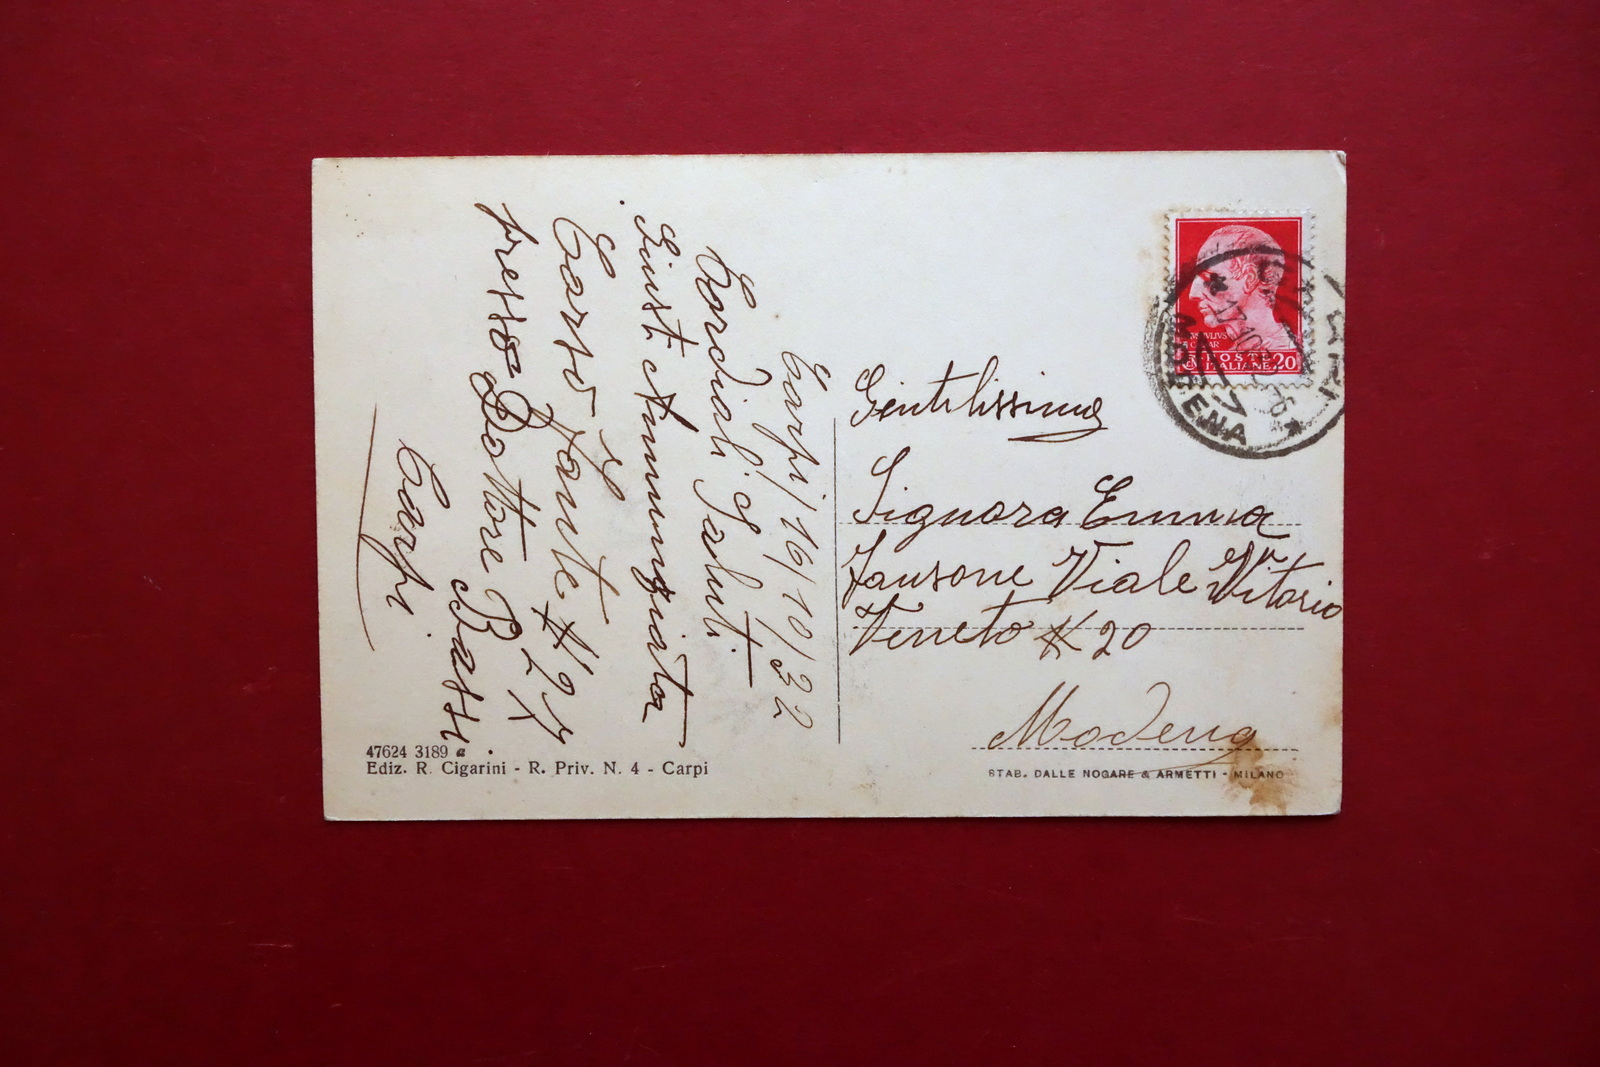 Carpi 16/10/32
Cordiali Saluti.
Giusti Annunziata
Corso Fante N 27
presso Dottore Bassi
Carpi.
Gentilissima
Signora Emma
Viale Vitorio
Veneto N 20
Modena
47624 3189 a
Ediz. R. Cigarini - R. Priv. N. 4 - Carpi
STAB. DALLE NOGARE & ARMETTI - MILANO
IVLIVS
POSTE
ITALIANE 20
CARPI
17.10
MODENA